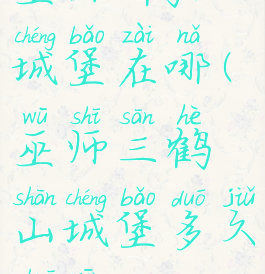 chéng bǎo zài nǎ
城堡在哪(
wū shī sān hè
巫师三鹤
shān chéng bǎo duō jiǔ
山城堡多久